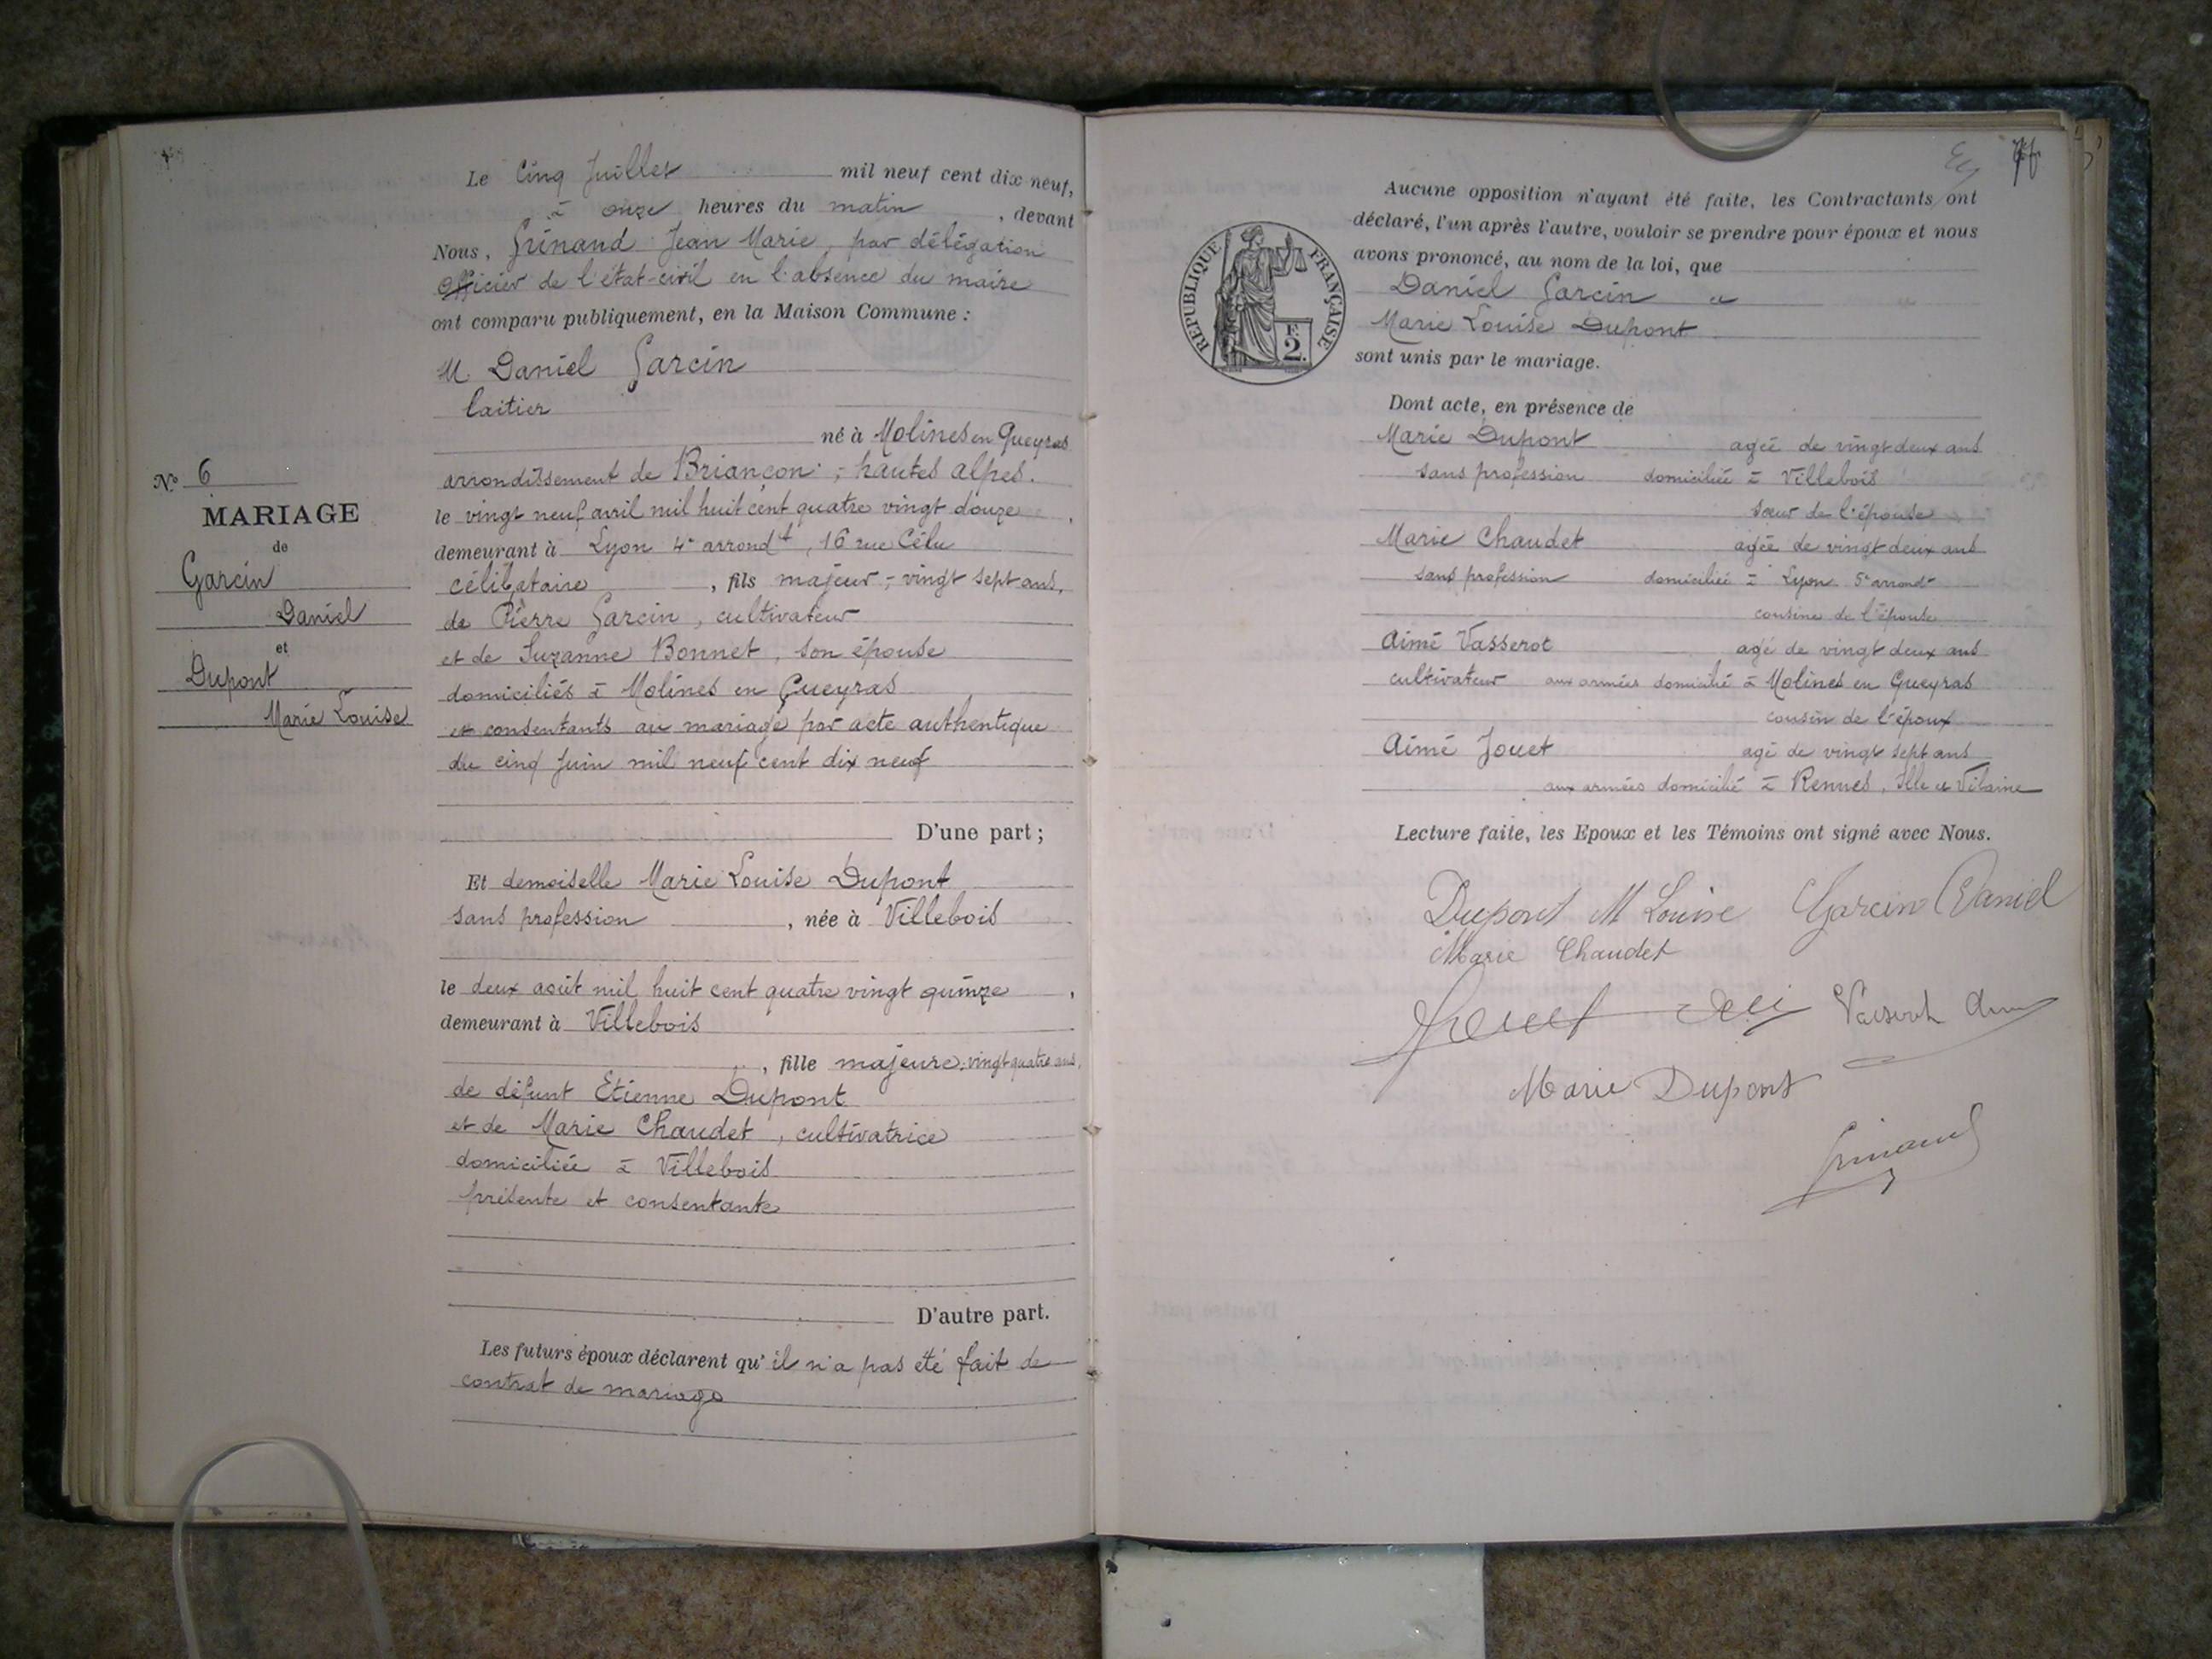 Le Cinq Juillet mil neuf cent dix neuf,
à onze heures du matin , devant
Nous, Grinand Jean Marie, par délégation
Officier de l'état-civil en l'absence du maire
ont comparu publiquement, en la Maison Commune :
M. Daniel Garcin
laitier
né à Molines en Queyras
arrondissement de Briançon ; hautes alpes.
le vingt neuf avril mil huit cent quatre vingt douze ,
demeurant à Lyon 4e arrondt, 16 rue Célu
célibataire , fils majeur, vingt sept ans,
de Pierre Garcin, cultivateur
et de Suzanne Bonnet, son épouse
domiciliés à Molines en Queyras
et consentants au mariage par acte authentique
du cinq Juin mil neuf cent dix neuf
D'une part ;
Et demoiselle Marie Louise Dupont
sans profession , née à Villebois
le deux août mil huit cent quatre vingt quinze ,
demeurant à Villebois
, fille majeure, vingt quatre ans,
de défunt Etienne Dupont
et de Marie Chaudet, cultivatrice
domiciliée à Villebois
présente et consentante
D'autre part.
Les futurs époux déclarent qu'il n'a pas été fait de
contrat de mariage
No 6
MARIAGE
de
Garcin
Daniel
et
Dupont
Marie Louise
Aucune opposition n'ayant été faite, les Contractants ont
déclaré, l'un après l'autre, vouloir se prendre pour époux et nous
avons prononcé, au nom de la loi, que
Daniel Garcin et
Marie Louise Dupont
sont unis par le mariage.
RÉPUBLIQUE FRANÇAISE
F.
2.
Dont acte, en présence de
Marie Dupont agée de vingt deux ans
sans profession domiciliée à Villebois
sœur de l'épouse
Marie Chaudet agée de vingt deux ans
sans profession domiciliée à Lyon 5e arrondt
cousine de l'épouse
Aimé Vasserot agé de vingt deux ans
cultivateur aux armées domicilié à Molines en Queyras
cousin de l'époux
Aimé Jouet agé de vingt sept ans
aux armées domicilié à Rennes, Ille et Vilaine
Lecture faite, les Epoux et les Témoins ont signé avec Nous.
Dupont M Louise Garcin Daniel
Marie Chaudet
Jouet Vasserot
Marie Dupont
Grinand